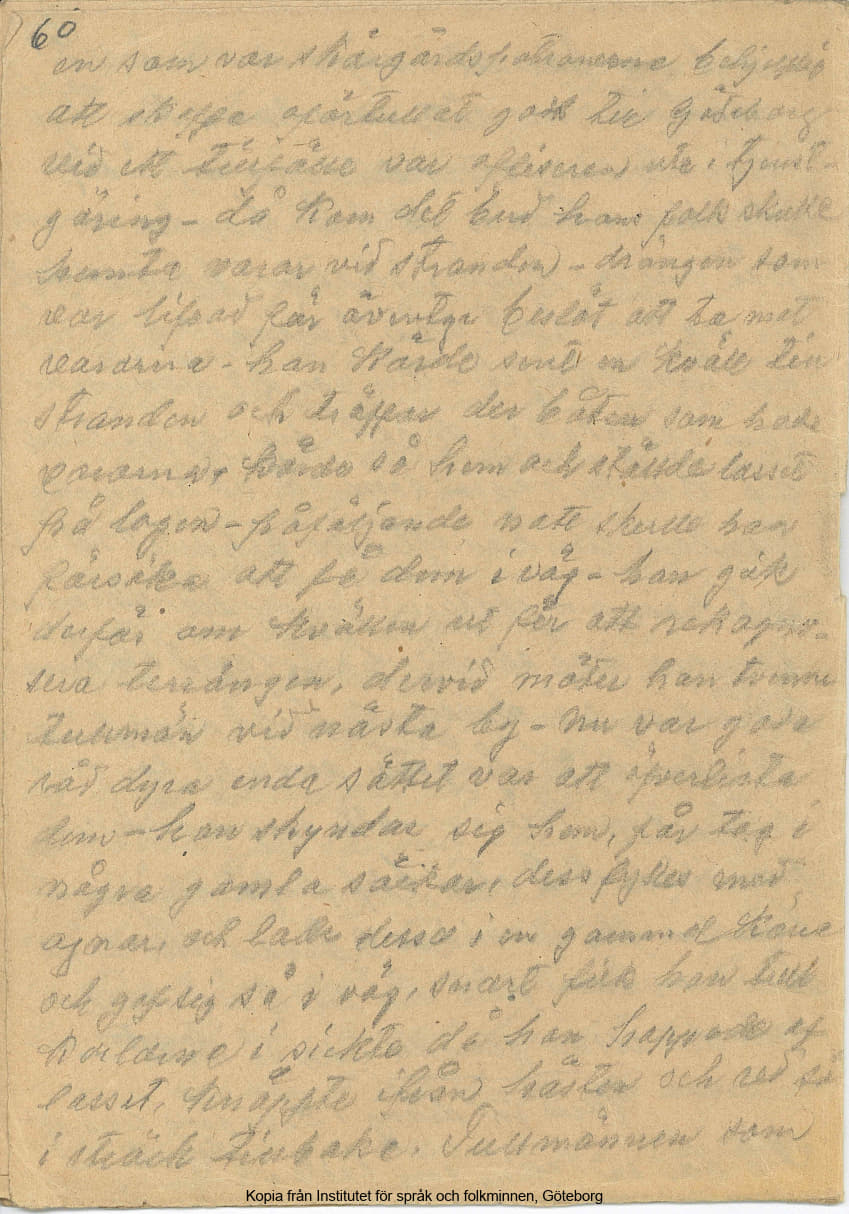 60
en som var skärgårdspatronerna behjelplig
att skaffa oförtullat gods till Göteborg
vid ett tillfälle var officeren ute i tjenst-
göring - då kom det bud hans folk skulle
hemta varor vid stranden - drängen som
var lifvad för äventyr beslöt att ta mot
varorna - han körde sent en kväll till
stranden och träffar der båten som hade
varorna, körde så hem och ställde lasset
på logen - påföljande natt skulle han
försöka att få dem i väg - han gick
derför om kvällen ut för att rekogno-
sera terrängen, dervid möter han tvenne
tullmän vid nästa by - Nu var goda
råd dyra enda sättet var att öfverlista
dem - han skyndar sig hem, får tag i
några gamla säckar, dess fylles med
agnar, och lade dessa i en gammal kärra
och gaf sig så i väg, snart fick han tull
karlarne i sickte då han hoppade af
lasset, knäppte ifrån hästen och red så
i sträck tillbaka. Tullmännen som
Kopia från Institutet för språk och folkminnen, Göteborg